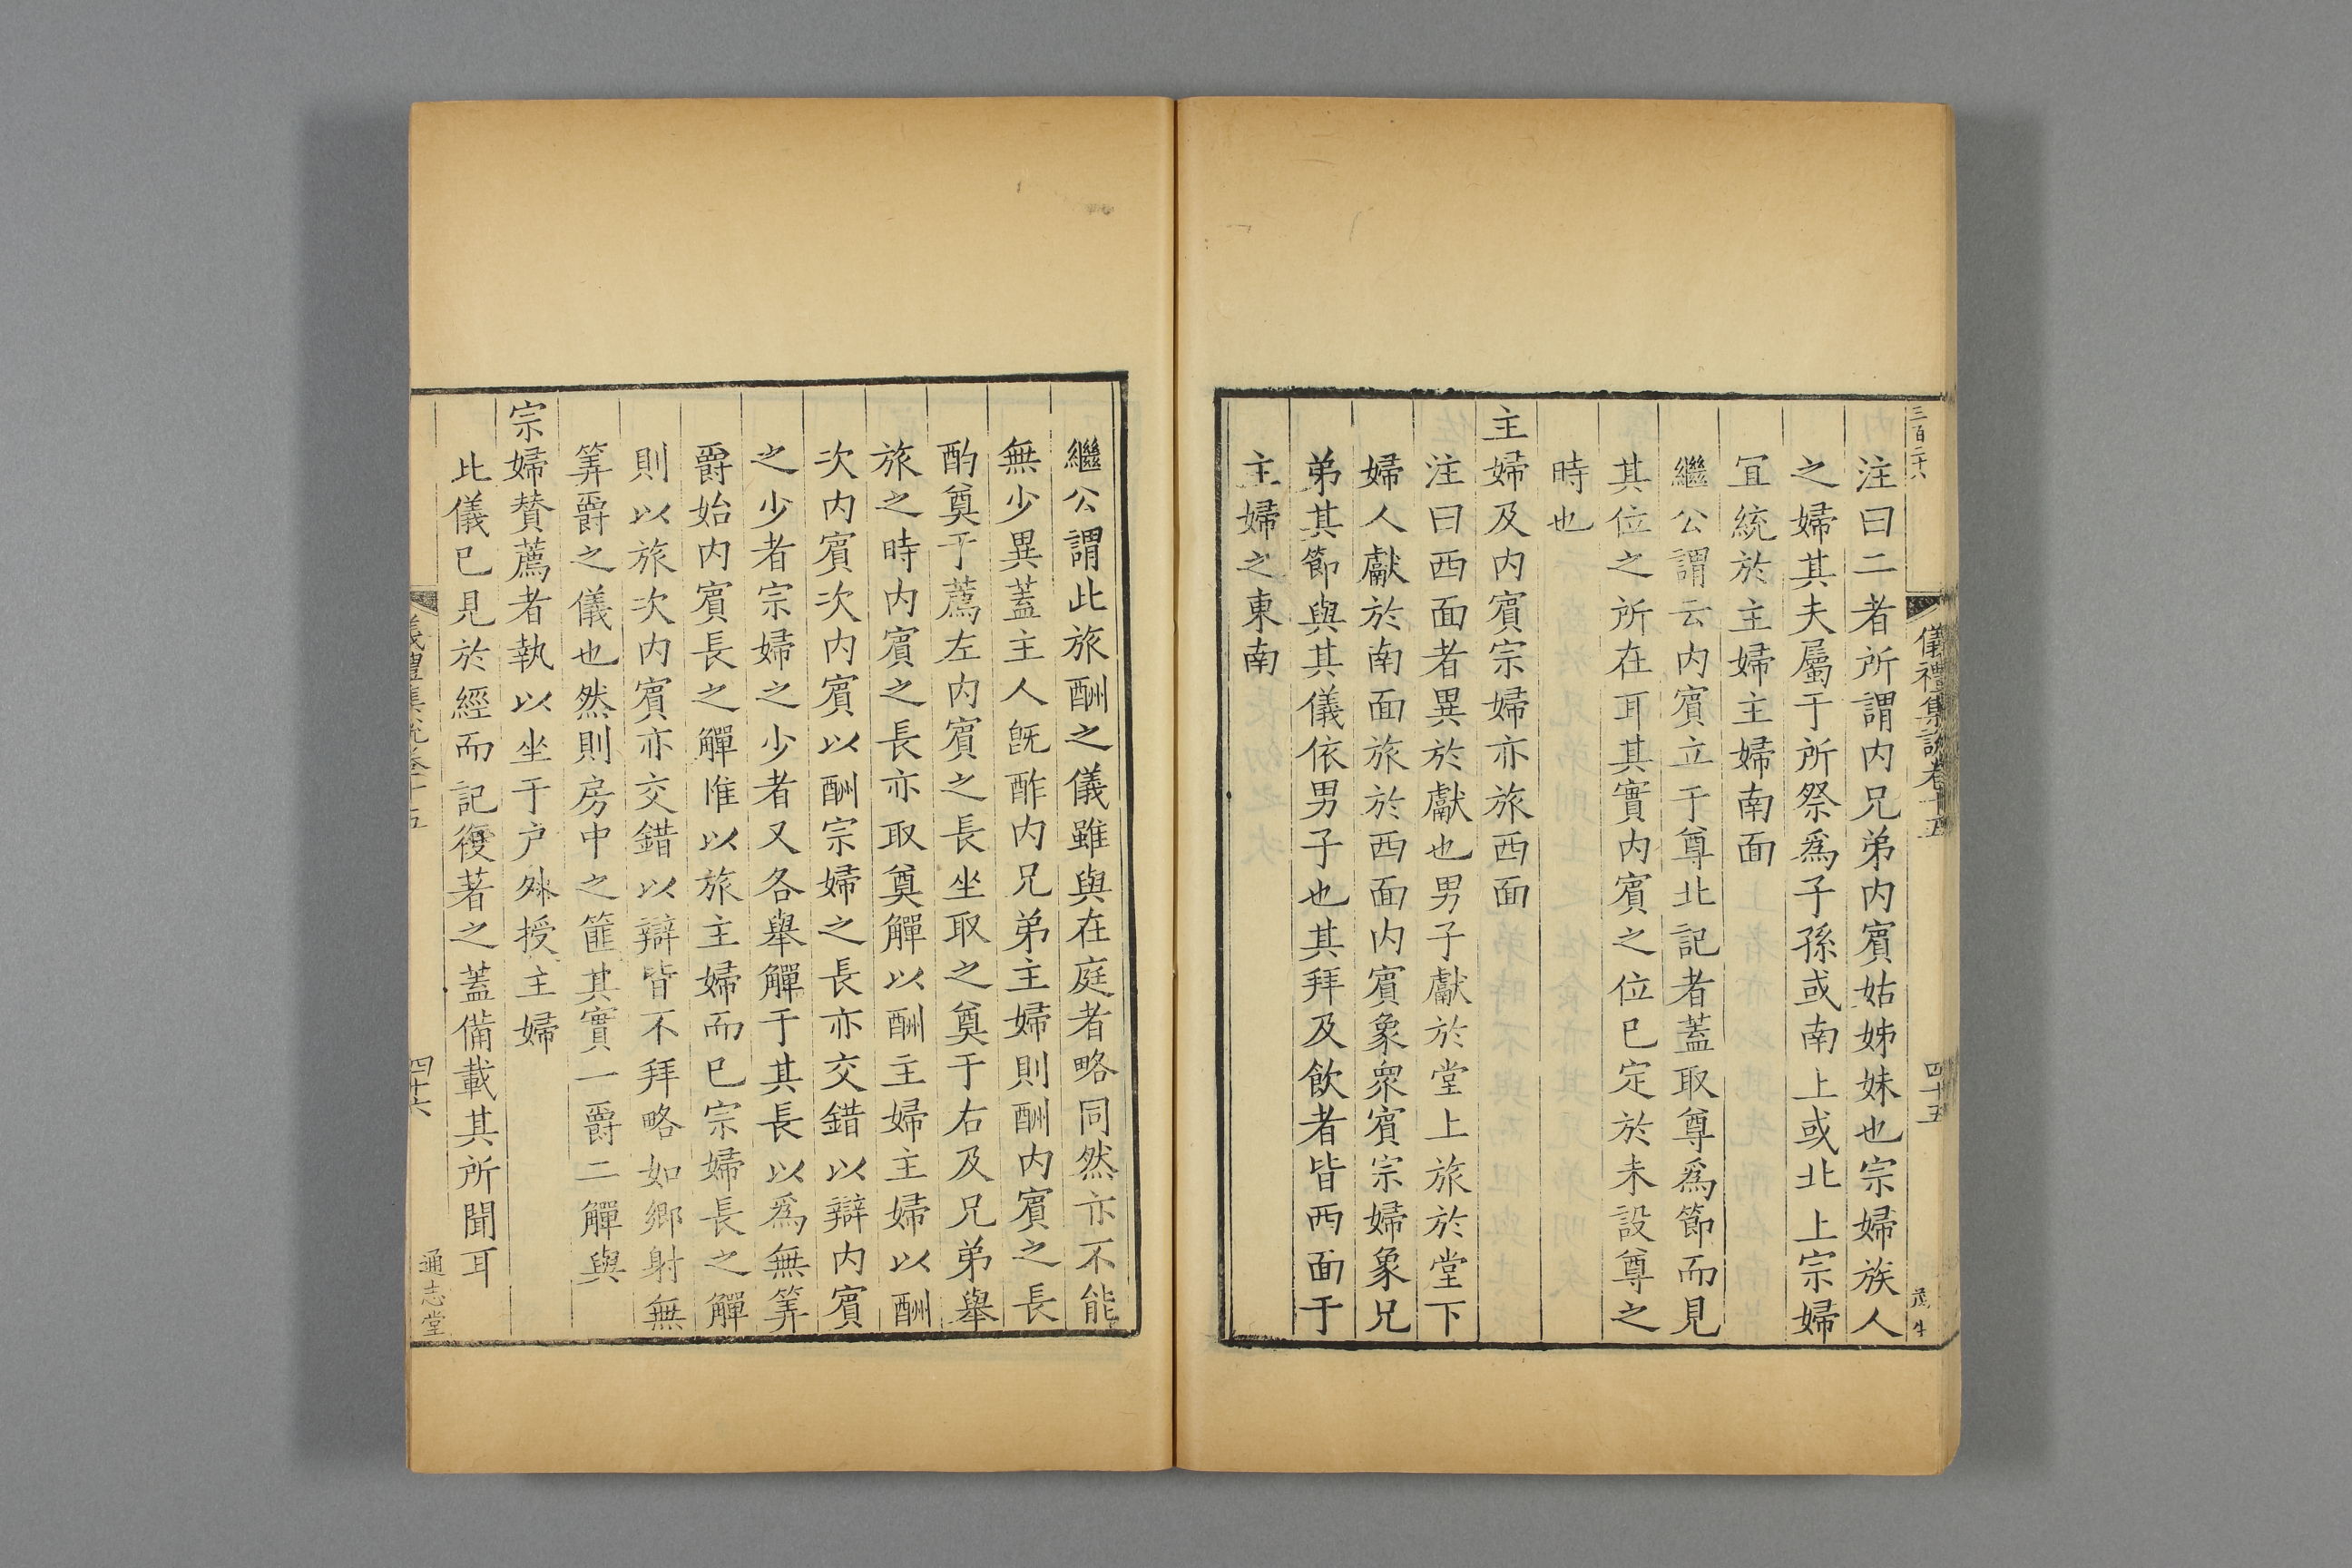 三百二十八
儀禮集說卷十五
四十五
注曰二者所謂内兄弟内賓姑姊妹也宗婦族人
之婦其夫屬于所祭爲子孫或南上或北上宗婦
冝統於主婦主婦南面
繼公謂云内賓立于尊北記者蓋取尊爲節而見
其位之所在耳其實内賓之位已定於未設尊之
時也
主婦及内賓宗婦亦旅西面
注曰西面者異於獻也男子獻於堂上旅於堂下
婦人獻於南面旅於西面内賓象衆賓宗婦象兄
弟其節與其儀依男子也其拜及飲者皆西面于
主婦之東南
繼公謂此旅酬之儀雖與在庭者略同然亦不能
無少異蓋主人既酢内兄弟主婦則酬内賓之長
酌奠于薦左内賓之長坐取之奠于右及兄弟舉
旅之時内賓之長亦取奠觶以酬主婦主婦以酬
次内賓次内賓以酬宗婦之長亦交錯以辯内賓
之少者宗婦之少者又各舉觶于其長以爲無筭
爵始内賓長之觶惟以旅主婦而已宗婦長之觶
則以旅次内賓亦交錯以辯皆不拜略如鄉射無
筭爵之儀也然則房中之篚其實一爵二觶與
宗婦贊薦者執以坐于户外授主婦
此儀已見於經而記復著之蓋備載其所聞耳
儀禮集說卷十五
四十六
通志堂